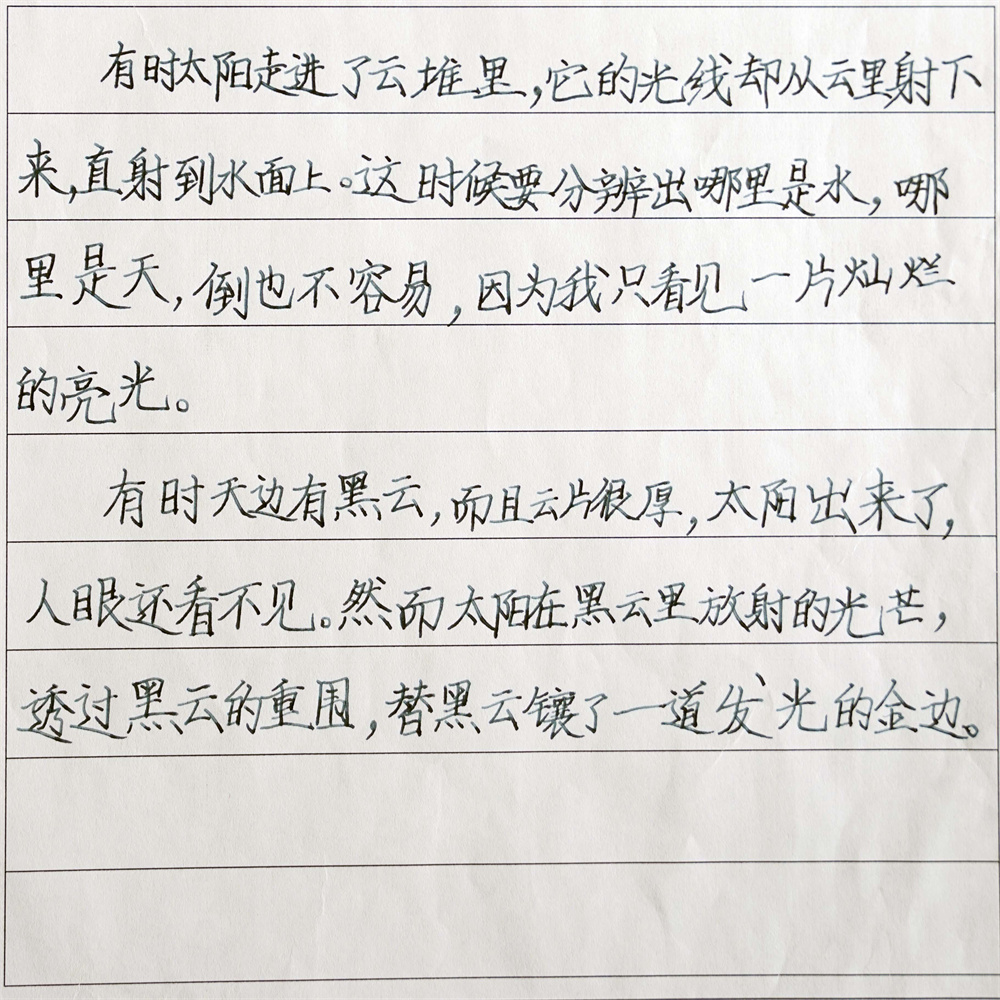 有时太阳走进了云堆里,它的光线却从云里射下
来,直射到水面上。这时候要分辨出哪里是水,哪
里是天,倒也不容易,因为我只看见一片灿烂
的亮光。
有时天边有黑云,而且云片很厚,太阳出来了,
人眼还看不见。然而太阳在黑云里放射的光芒,
透过黑云的重围,替黑云镶了一道发光的金边。